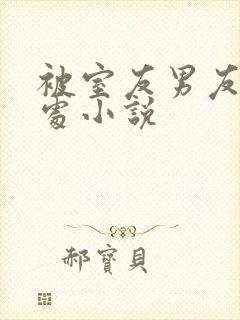 被室友男友
處小説
郝寶貝